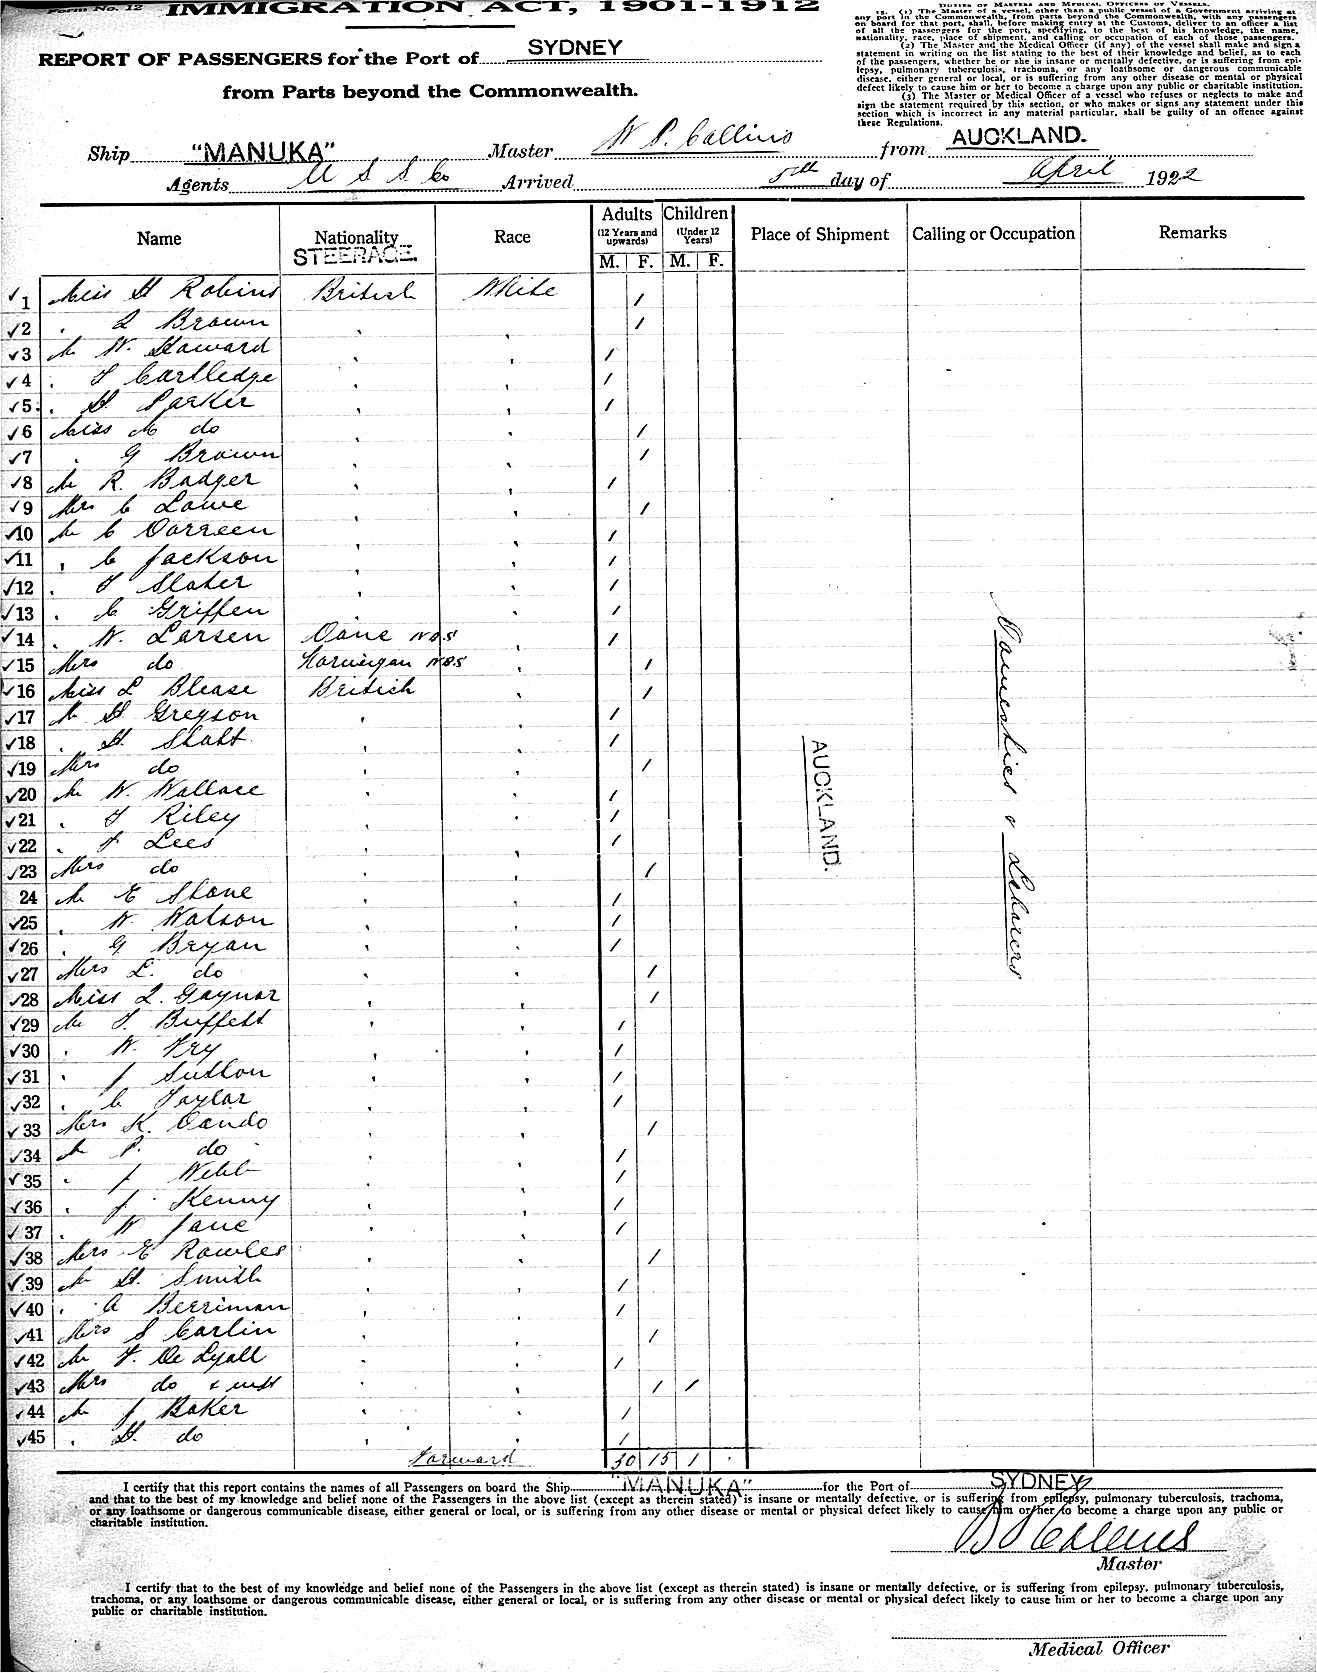 Form No. 12
IMMIGRATION ACT, 1901-1912
REPORT OF PASSENGERS for the Port of SYDNEY
from Parts beyond the Commonwealth.
DUTIES OF MASTERS AND MEDICAL OFFICERS OF VESSELS.
15. (1) The Master of a vessel, other than a public vessel of a Government arriving at
any port in the Commonwealth, from parts beyond the Commonwealth, with any passengers
on board for that port, shall, before making entry at the Customs, deliver to an officer a list
of all the passengers for the port, specifying, to the best of his knowledge, the name,
nationality, race, place of shipment, and calling or occupation of each of those passengers.
(2) The Master and the Medical Officer (if any) of the vessel shall make and sign a
statement in writing on the list stating to the best of their knowledge and belief, as to each
of the passengers, whether he or she is insane or mentally defective, or is suffering from epi-
lepsy, pulmonary tuberculosis, trachoma, or any loathsome or dangerous communicable
disease, either general or local, or is suffering from any other disease or mental or physical
defect likely to cause him or her to become a charge upon any public or charitable institution.
(3) The Master or Medical Officer of a vessel who refuses or neglects to make and
sign the statement required by this section, or who makes or signs any statement under this
section which is incorrect in any material particular, shall be guilty of an offence against
these Regulations.
Ship "MANUKA" Master W P. Collins from AUCKLAND.
Agents U S S Co Arrived 5th day of April 1922
Name Nationality Race Adults (12 Years and upwards) Children (Under 12 Years) Place of Shipment Calling or Occupation Remarks
STEERAGE. M. F. M. F.
1 Miss H Robins British White 1
2 . L Brown 1
3 Mr W. Howard 1
4 . T Cartledge 1
5 . H. Parker 1
6 Miss M do 1
7 . G Brown 1
8 Mr R. Badger 1
9 Mrs C Lowe 1
10 Mr C Darreen 1
11 . C Jackson 1
12 . T Slater 1
13 . C Griffen 1
14 . W. Larsen Dane NOS 1
15 Mrs do Norwegan NOS 1
16 Miss L Blease British 1
17 Mr H Greyson 1
18 . H. Stott 1
19 Mrs do 1
20 Mr W. Wallace 1
21 . T Riley 1
22 . J Lees 1
23 Mrs do 1
24 Mr E Stone 1
25 . W. Watson 1
26 . G Bryan 1
27 Mrs L. do 1
28 Miss L. Gaynor 1
29 Mr T. Buffett 1
30 . W. Fry 1
31 . J Sutton 1
32 . C Taylor 1
33 Mrs K. Dando 1
34 Mr P. do 1
35 . J Webb 1
36 . J. Kenny 1
37 . W Jane 1
38 Mrs E Rowles 1
39 Mr H. Smith 1
40 . A Berriman 1
41 Mrs S Carlin 1
42 Mr F. De Lyall 1
43 Mrs do & inft 1 1
44 Mr J Baker 1
45 . H. do 1
AUCKLAND.
Domestics & Labourers
Forward 30 15 1 .
I certify that this report contains the names of all Passengers on board the Ship "MANUKA" for the Port of SYDNEY
and that to the best of my knowledge and belief none of the Passengers in the above list (except as therein stated) is insane or mentally defective, or is suffering from epilepsy, pulmonary tuberculosis, trachoma,
or any loathsome or dangerous communicable disease, either general or local, or is suffering from any other disease or mental or physical defect likely to cause him or her to become a charge upon any public or
charitable institution.
Collins
Master
I certify that to the best of my knowledge and belief none of the Passengers in the above list (except as therein stated) is insane or mentally defective, or is suffering from epilepsy, pulmonary tuberculosis,
trachoma, or any loathsome or dangerous communicable disease, either general or local, or is suffering from any other disease or mental or physical defect likely to cause him or her to become a charge upon any
public or charitable institution.
Medical Officer